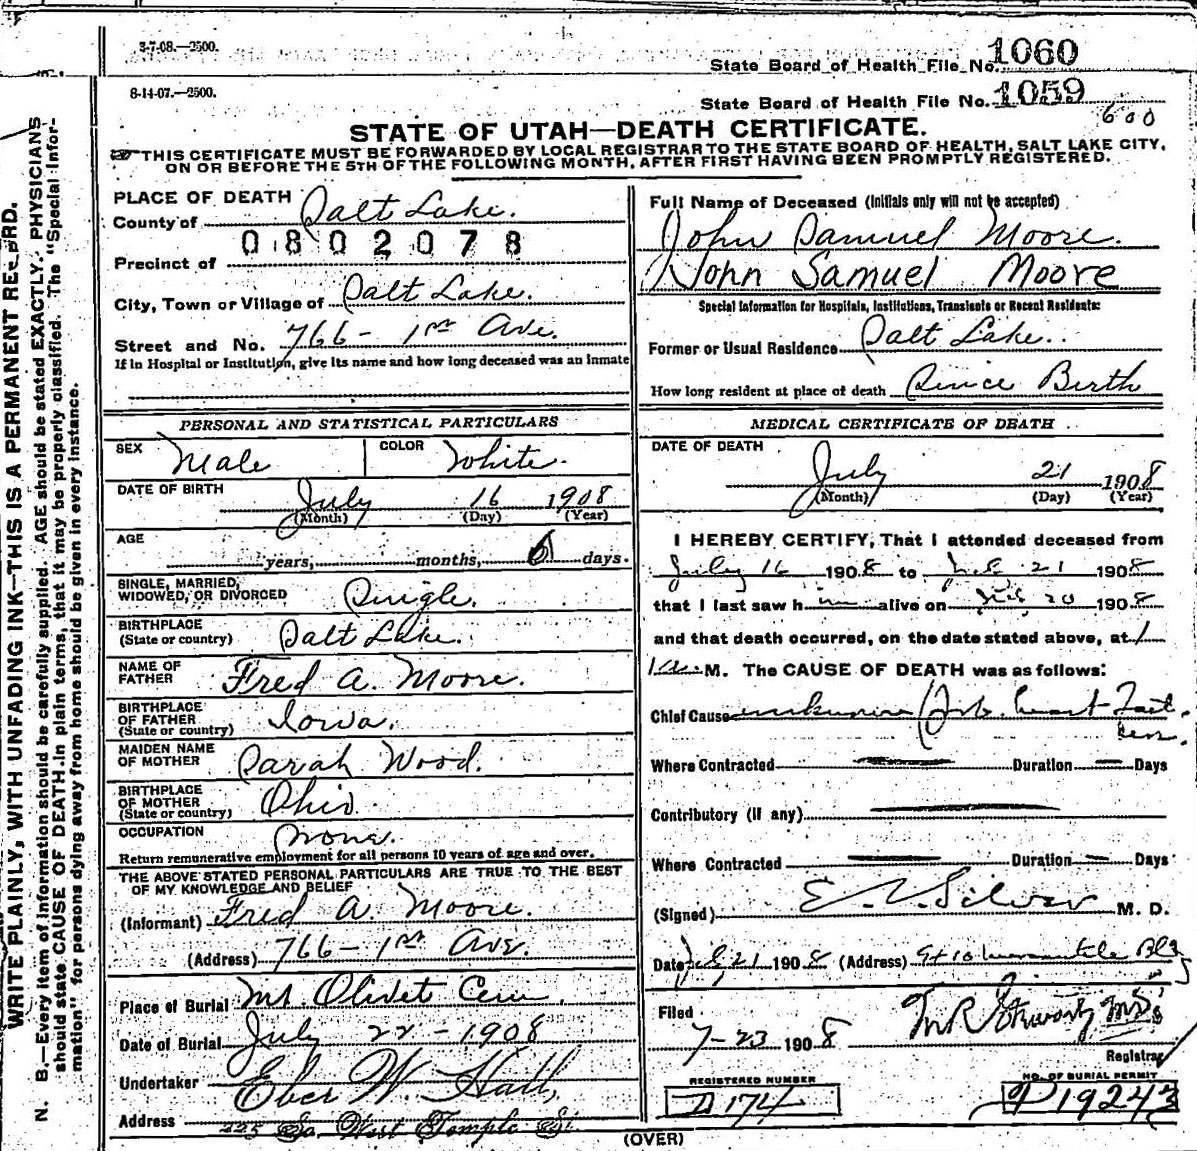 3-7-08.—2500.
State Board of Health File No. 1060
8-14-07.—2500.
State Board of Health File No. 1059
600
STATE OF UTAH—DEATH CERTIFICATE.
THIS CERTIFICATE MUST BE FORWARDED BY LOCAL REGISTRAR TO THE STATE BOARD OF HEALTH, SALT LAKE CITY,
ON OR BEFORE THE 5TH OF THE FOLLOWING MONTH, AFTER FIRST HAVING BEEN PROMPTLY REGISTERED.
WRITE PLAINLY, WITH UNFADING INK—THIS IS A PERMANENT RECORD.
N. B.—Every item of information should be carefully supplied. AGE should be stated EXACTLY. PHYSICIANS
should state CAUSE OF DEATH in plain terms, that it may be properly classified. The "Special Infor-
mation" for persons dying away from home should be given in every instance.
PLACE OF DEATH
County of Salt Lake.
0802078
Precinct of
City, Town or Village of Salt Lake.
Street and No. 766 - 1st Ave.
If in Hospital or Institution, give its name and how long deceased was an inmate
PERSONAL AND STATISTICAL PARTICULARS
SEX Male COLOR White.
DATE OF BIRTH July 16 1908
(Month) (Day) (Year)
AGE years, months, 6 days.
SINGLE, MARRIED,
WIDOWED, OR DIVORCED Single.
BIRTHPLACE
(State or country) Salt Lake.
NAME OF
FATHER Fred A. Moore.
BIRTHPLACE
OF FATHER
(State or country) Iowa.
MAIDEN NAME
OF MOTHER Sarah Wood.
BIRTHPLACE
OF MOTHER
(State or country) Ohio.
OCCUPATION None.
Return remunerative employment for all persons 10 years of age and over.
THE ABOVE STATED PERSONAL PARTICULARS ARE TRUE TO THE BEST
OF MY KNOWLEDGE AND BELIEF
(Informant) Fred A. Moore.
(Address) 766 - 1st Ave.
Place of Burial Mt. Olivet Cem.
Date of Burial July 22 - 1908
Undertaker Eber W. Hall,
Address 225 So. West Temple St.
Full Name of Deceased (Initials only will not be accepted)
John Samuel Moore.
John Samuel Moore
Special Information for Hospitals, Institutions, Transients or Recent Residents:
Former or Usual Residence Salt Lake.
How long resident at place of death Since Birth
MEDICAL CERTIFICATE OF DEATH
DATE OF DEATH
July 21 1908
(Month) (Day) (Year)
I HEREBY CERTIFY, That I attended deceased from
July 16 1908 to July 21 1908
that I last saw him alive on July 20 1908
and that death occurred, on the date stated above, at 1
a M. The CAUSE OF DEATH was as follows:
Chief Cause unknown
Where Contracted Duration Days
Contributory (if any)
Where Contracted Duration Days
(Signed) M. D.
Date July 21 1908 (Address) 9+10 Mercantile Blg
Filed
7-23 1908
Registrar
REGISTERED NUMBER
D 174
NO. OF BURIAL PERMIT
(OVER)